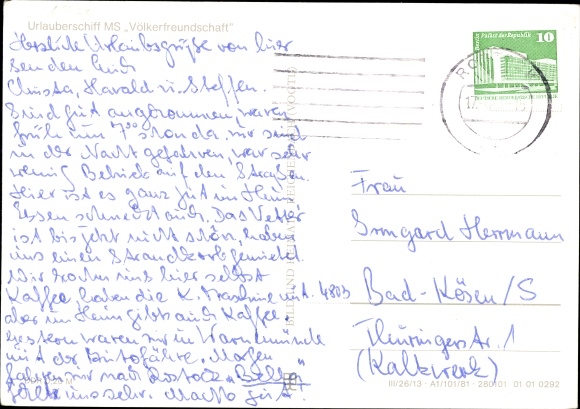 Urlauberschiff MS „Völkerfreundschaft“
Herzliche Urlaubsgrüße von hier
senden Euch
Christa, Harald u. Steffen.
Sind gut angekommen, waren
früh um 7⁰⁰ schon da. wir sind
in der Nacht gefahren, war sehr
wenig Betrieb auf den Straßen.
Hier ist es ganz gut im Heim
Essen schmeckt auch. Das Wetter
ist bis jetzt nicht schön, haben
uns einen Strandkorb gemietet.
Wir kochen uns hier selbst
Kaffee, haben die K. Maschine mit.
aber im Heim gibts auch Kaffee.
gestern waren wir in Warnemünde
mit der Autofähre. Morgen
fahren wir nach Rostock
uns sehr. Machts gut
10
Berlin, Palast der Republik
DDR
17.
Frau
Irmgard Herrmann
4803
Bad-Kösen/S
Thüringerstr. 1
(Kalkwerk)
BILD UND HEIMAT REICHENBACH
III/26/13 · A1/101/81 · 280101 01 01 0292